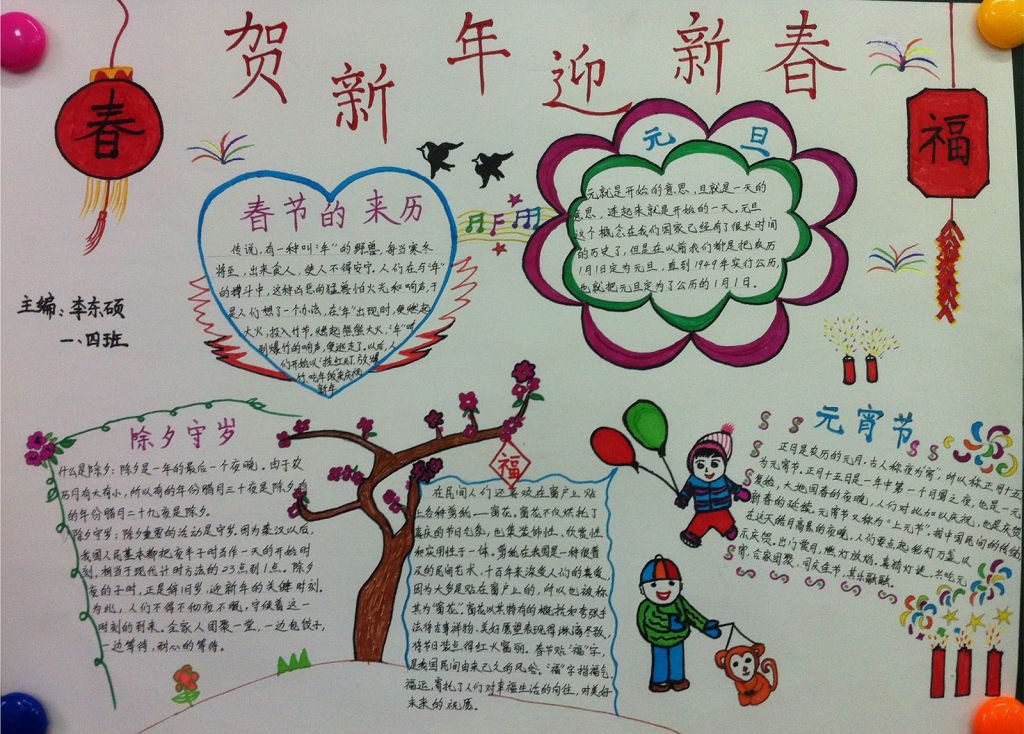 贺新年迎新春
春
福
主编：李东硕
一、四班
春节的来历
传说，有一种叫“年”的野兽，每当寒冬
将至，出来食人，使人不得安宁。人们在与“年”
的搏斗中，这种凶恶的猛兽怕火光和响声，于
是人们想了一个办法，在“年”出现时，便燃起
大火，投入竹节，燃起熊熊大火，“年”听
到爆竹的响声，便逃走了。以后，人
们开始以“挂红灯，放爆
竹，吃年饭来庆祝
新年
元旦
元就是开始的意思，旦就是一天的
意思，连起来就是开始的一天。元旦
这个概念在我们国家已经有了很长时间
的历史了，但是在以前我们都是把农历
1月1日定为元旦，直到1949年实行公历，
也就把元旦定为了公历的1月1日。
除夕守岁
什么是除夕：除夕是一年的最后一个夜晚。由于农
历月有大有小，所以有的年份腊月三十夜是除夕，有
的年份腊月二十九夜是除夕。
除夕守岁：除夕重要的活动是守岁。因为秦汉以后，
我国人民基本都把夜半子时当作一天的开始时
刻，相当于现代计时方法的23点到1点。除夕
夜的子时，正是辞旧岁，迎新年的关键时刻。
为此，人们不得不彻夜不眠，守候着这一
时刻的到来。全家人团聚一堂，一边包饺子，
一边等待，耐心的等待。
福
在民间人们还喜欢在窗户上贴
上各种剪纸——窗花。窗花不仅烘托了
喜庆的节日气氛，也集装饰性、欣赏性
和实用性于一体。剪纸在我国是一种很普
及的民间艺术，千百年来深受人们的喜爱，
因为大多是贴在窗户上的，所以也被称
其为“窗花”。窗花以其特有的概括和夸张手
法将吉事祥物、美好愿望表现得淋漓尽致，
将节日装点得红火富丽。春节贴“福”字，
是我国民间由来已久的风俗。“福”字指福气、
福运，寄托了人们对幸福生活的向往，对美好
未来的祝愿。
元宵节
正月是农历的元月，古人称夜为宵，所以称正月十五
为元宵节。正月十五日是一年中第一个月圆之夜，也是一元
复始，大地回春的夜晚，人们对此加以庆祝，也是庆贺
新春的延续。元宵节又称为“上元节”。按中国民间的传统
在这天皓月高悬的夜晚，人们要点起彩灯万盏，以
示庆贺。出门赏月，燃灯放焰，喜猜灯谜，共吃元
宵，合家团聚，同庆佳节，其乐融融。